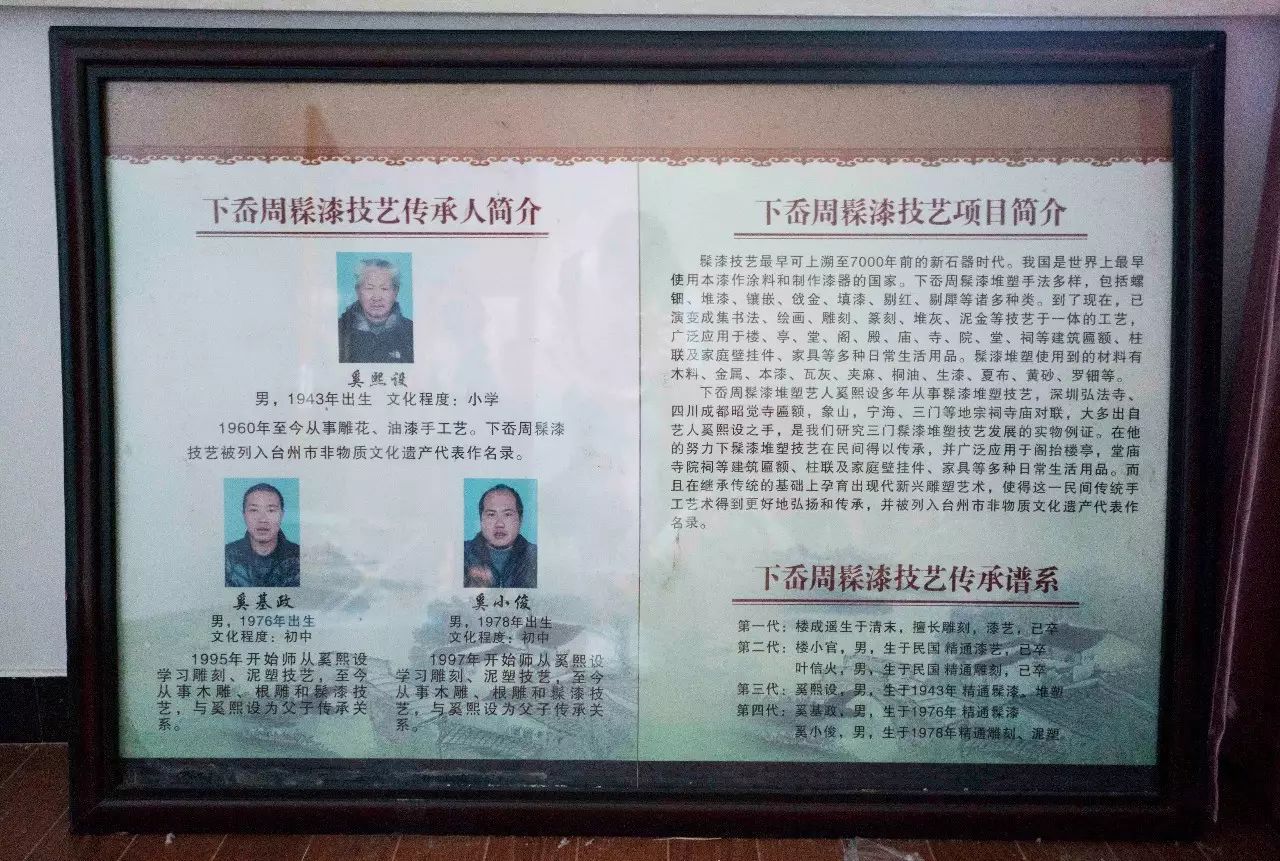 下岙周髹漆技艺传承人简介
奚熙设
男，1943年出生 文化程度：小学
1960年至今从事雕花、油漆手工艺。下岙周髹漆
技艺被列入台州市非物质文化遗产代表作名录。
奚基政
男，1976年出生
文化程度：初中
1995年开始师从奚熙设
学习雕刻、泥塑技艺，至今
从事木雕、根雕和髹漆技
艺，与奚熙设为父子传承关
系。
奚小俊
男，1978年出生
文化程度：初中
1997年开始师从奚熙设
学习雕刻、泥塑技艺，至今
从事木雕、根雕和髹漆技
艺，与奚熙设为父子传承关
系。
下岙周髹漆技艺项目简介
髹漆技艺最早可上溯至7000年前的新石器时代。我国是世界上最早
使用本漆作涂料和制作漆器的国家。下岙周髹漆堆塑手法多样，包括螺
钿、堆漆、镶嵌、戗金、填漆、剔红、剔犀等诸多种类。到了现在，已
演变成集书法、绘画、雕刻、篆刻、堆灰、泥金等技艺于一体的工艺，
广泛应用于楼、亭、堂、阁、殿、庙、寺、院、堂、祠等建筑匾额、柱
联及家庭壁挂件、家具等多种日常生活用品。髹漆堆塑使用到的材料有
木料、金属、本漆、瓦灰、夹麻、桐油、生漆、夏布、黄砂、罗钿等。
下岙周髹漆堆塑艺人奚熙设多年从事髹漆堆塑技艺，深圳弘法寺、
四川成都昭觉寺匾额，象山，宁海、三门等地宗祠寺庙对联，大多出自
艺人奚熙设之手，是我们研究三门髹漆堆塑技艺发展的实物例证。在他
的努力下髹漆堆塑技艺在民间得以传承，并广泛应用于阁抬楼亭，堂庙
寺院祠等建筑匾额、柱联及家庭壁挂件、家具等多种日常生活用品。而
且在继承传统的基础上孕育出现代新兴雕塑艺术，使得这一民间传统手
工艺术得到更好地弘扬和传承，并被列入台州市非物质文化遗产代表作
名录。
下岙周髹漆技艺传承谱系
第一代：楼成遥生于清末，擅长雕刻，漆艺，已卒
第二代：楼小官，男，生于民国 精通漆艺，已卒
叶信火，男，生于民国 精通雕刻，已卒
第三代：奚熙设，男，生于1943年 精通髹漆。堆塑
第四代：奚基政，男，生于1976年 精通髹漆
奚小俊，男，生于1978年精通雕刻、泥塑。